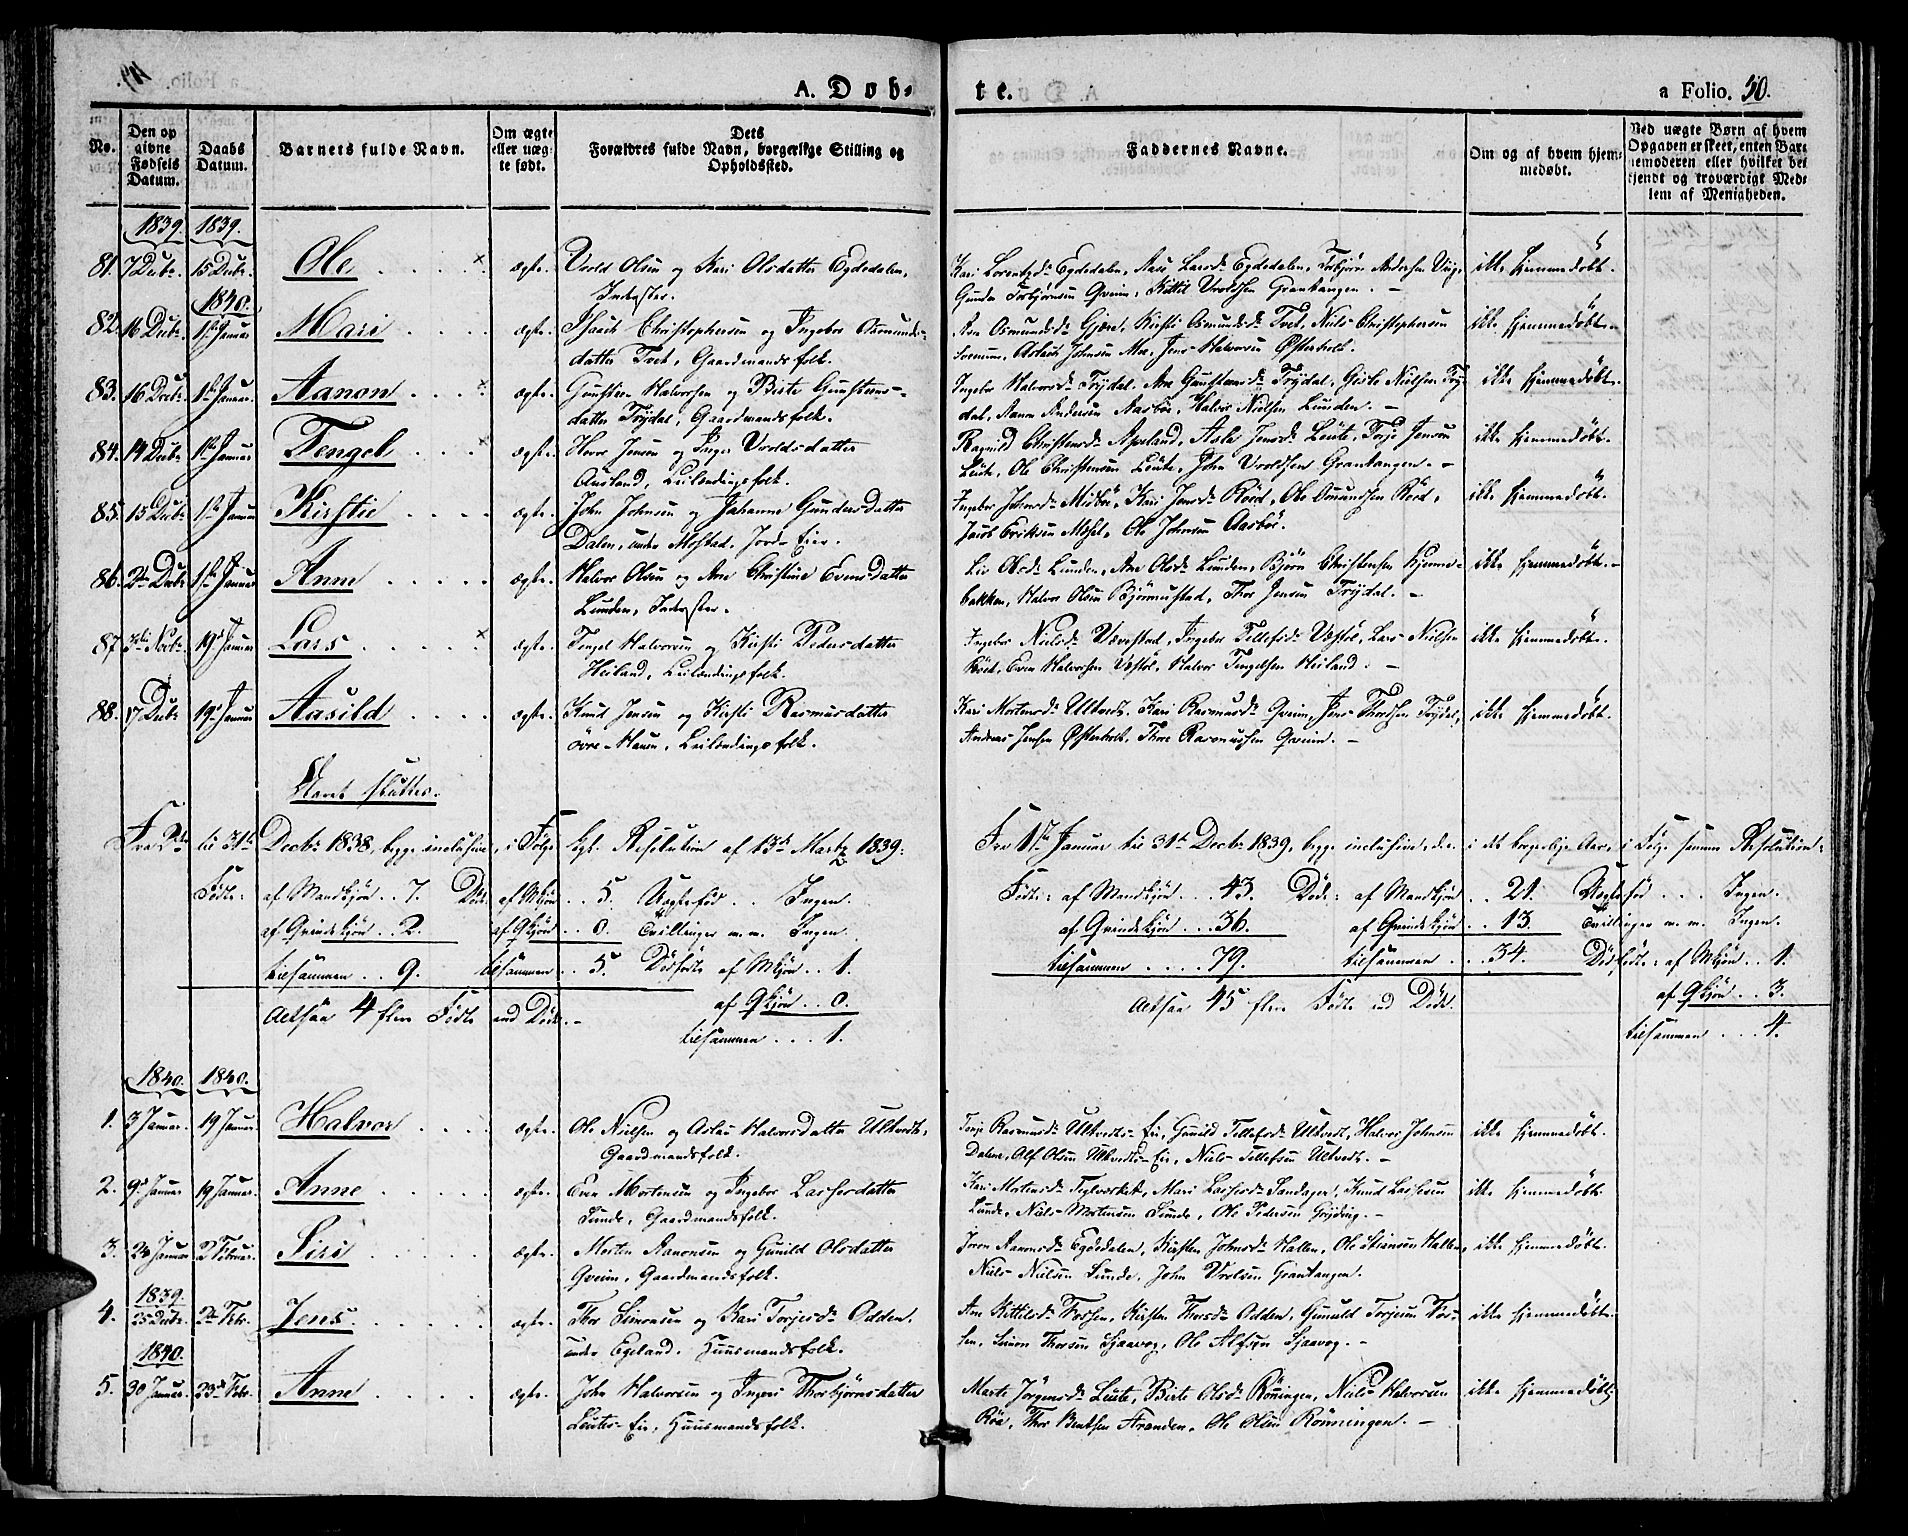 A. Døb-
te.
a Folio. 50.
No.
Den opgivne Fødsels Datum.
Daabs Datum.
Barnets fulde Navn.
Om ægte eller uægte født.
Dets Forældres fulde Navn, borgerlige Stilling og Opholdssted.
Faddernes Navne.
Om og af hvem hjemmedøbt.
Ved uægte Børn af hvem Opgaven er skeet, enten Barnemoderen eller hvilket bekjendt og troværdigt Medlem af Menigheden.
1839. 1839.
81. 7 Decbr. 15 Decbr. Ole ægte. Vrold Olsen og Kari Olsdatter Egdedalen, Inderster.
Kari Lorentzd. Egdedalen, Aase Larsd. Egdedalen, Torbjørn Andersen
Gunder Torbjørnsen Qveim, Kittil Vroldsen Grantangen. ikke hjemmedøbt.
1840.
82. 16 Decbr. 1ste Januar Mari ægte. Isach Christophersen og Ingebor Osmunds-
datter Tvet, Gaardmandsfolk.
Ane Osmundsd. Gjære, Kirsti Osmundsd. Tvet, Niels Christophersen
Aslach Johnsen Moe, Jens Halvorsen Østerholt. ikke hjemmedøbt.
83. 16 Decbr. 1ste Januar. Aanon ægte. Gunsten Halvorsen og Birte Gunstens-
datter Trydal, Gaardmandsfolk.
Ingebor Halvorsd. Trydal, Ane Gunstensd. Trydal, Gisle Nielsen Try-
dal, Aanon Andersen Aasbø, Halvor Nielsen Lunden. ikke hjemmedøbt.
84. 14 Decbr 1ste Januar Tengel ægte. Jensen og Inger Vroldsdatter
Ausland, Leilændingsfolk.
Ragnild Christensd. Apeland, Asle Jensd. Leute, Torje Jensen
Leute, Ole Christensen Leute, John Vroldsen Grantangen. ikke hjemmedøbt.
85. 15 Decbr 1ste Januar Kirstie ægte. John Johnsen og Johanne Gundersdatter
Dalen, under Mostad, Jord-Eier.
Ingebor Johnsd. Midbøe, Kari Jensd. Röed, Ole Omundsen Röed,
Jacob Eriksen Mosel, Ole Johnsen Aasbøe. ikke hjemmedøbt.
86. Decbr 1ste Januar Anne ægte. Halvor Olsen og Ane Christine Evensdatter
Lunden, Inderster.
Liv Olsd. Lunden, Ane Olsd. Lunden, Bjørn Christensen Hjemme-
bakken, Halvor Olsen Bjørnustad, Thor Jensen Trydal. ikke hjemmedøbt.
87. 3die Novbr. 19de Januar Lars ægte. Tengel Halvorsen og Kirsti Pedersdatter
Heiland, Leilændingsfolk.
Ingebor Nielsd. Vævestad, Ingebor Tellefsd. Vestøl, Lars Nielsen
Röed, Even Halvorsen Vestøl, Halvor Tengelsen Heiland. ikke hjemmedøbt.
88. 17 Decbr 19de Januar Aasild ægte. Knud Jensen og Kirsti Rasmusdatter
øvre-Hauen, Leilændingsfolk.
Kari Mortensd. Ulltvedt, Kari Rasmusd. Qveim, Jens Thordsen Trydal,
Andreas Jensen Østerholt, Thore Rasmussen Qveim. ikke hjemmedøbt.
Aaret sluttes.
Fra 2den til 31te Decbr. 1838, begge inclusive, i Følge kgl. Resolution af 13de Martz 1839:
Fødte: af Mandkjøn . . 7. Døde: af Mkjøn . . 5. Uægtefød . . Ingen.
af Qvindekjøn . . 2. af Qkjøn . . 0. Tvillinger m.m. Ingen.
tilsammen . . 9. tilsammen . . 5. Dødfødte af Mkjøn . . 1.
af Qkjøn . . 0.
Altsaa 4 flere Fødte end Døde.
tilsammen . . . 1.
Fra 1ste Januar til 31te Decbr. 1839, begge inclusive, det er i det borgerlige Aar, i Følge samme Resolution:
Fødte: af Mandkjøn . . . 43. Døde: af Mandkjøn . . 21. Uægtefød . . . Ingen.
af Qvindekjøn . . . 36. af Qvindekjøn . . 13. Tvillinger m. m. Ingen.
tilsammen . . . . 79. tilsammen . . . 34. Dødfødte: af Mkjøn . . 1.
Altsaa 45 flere Fødte end Døde. af Qkjøn . . 3.
tilsammen . . . 4.
1840. 1840.
1. 3 Januar. 19 Januar. Halvor ægte. Ole Nielsen og Aslau Halvorsdatter Ulltvedt,
Gaardmandsfolk.
Torje Rasmusd. Ulltvedts-Eie, Gunild Tellefsd. Ulltvedt, Halvor Johnsen
Dalen, Alf Olsen Ulltvedts-Eie, Niels Tellefsen Ulltvedt. ikke hjemmedøbt.
2. 9de Januar 19 Januar. Anne ægte. Even Mortensen og Ingebor Lassesdatter
Sunde, Gaardmandsfolk.
Kari Mortensd. Teglverket, Mari Lassesd. Sandager, Knud Lassesen
Lunde, Niels Mortensen Sunde, Ole Pedersen Gryting. ikke hjemmedøbt.
3. 24 Januar 2 Februar. Siri ægte. Morten Aanonsen og Gunild Olsdatter
Qveim, Gaardmandsfolk.
Joron Aanonsd. Egdedalen, Kirsten Johnsd. Hallen, Ole Stiansen Hallen,
Niels Nielsen Sunde, John Vrolsen Grantangen. ikke hjemmedøbt.
1839.
4. 25 Decbr. 2den Febr. Jens ægte. Thor Simonsen og Kari Torjesd. Odden,
under Egeland, Huusmandsfolk.
Ane Kittelsd. Fossen, Kirsten Thorsd. Odden, Gunuld Torjesen Fos-
sen, Simon Thorsen Sjaavog, Ole Alfsen Sjaavog. ikke hjemmedøbt.
1840.
5. 30 Januar. 23de Febr. Anne ægte. John Halvorsen og Ingeri Thorbjørnsdatter
Leutes-Eie, Huusmandsfolk.
Marte Jörgensd. Leute, Birte Olsd. Rønningen, Niels Halvorsen
Röe, Thor Bentsen Stranden, Ole Olsen Rønningen. ikke hjemmedøbt.